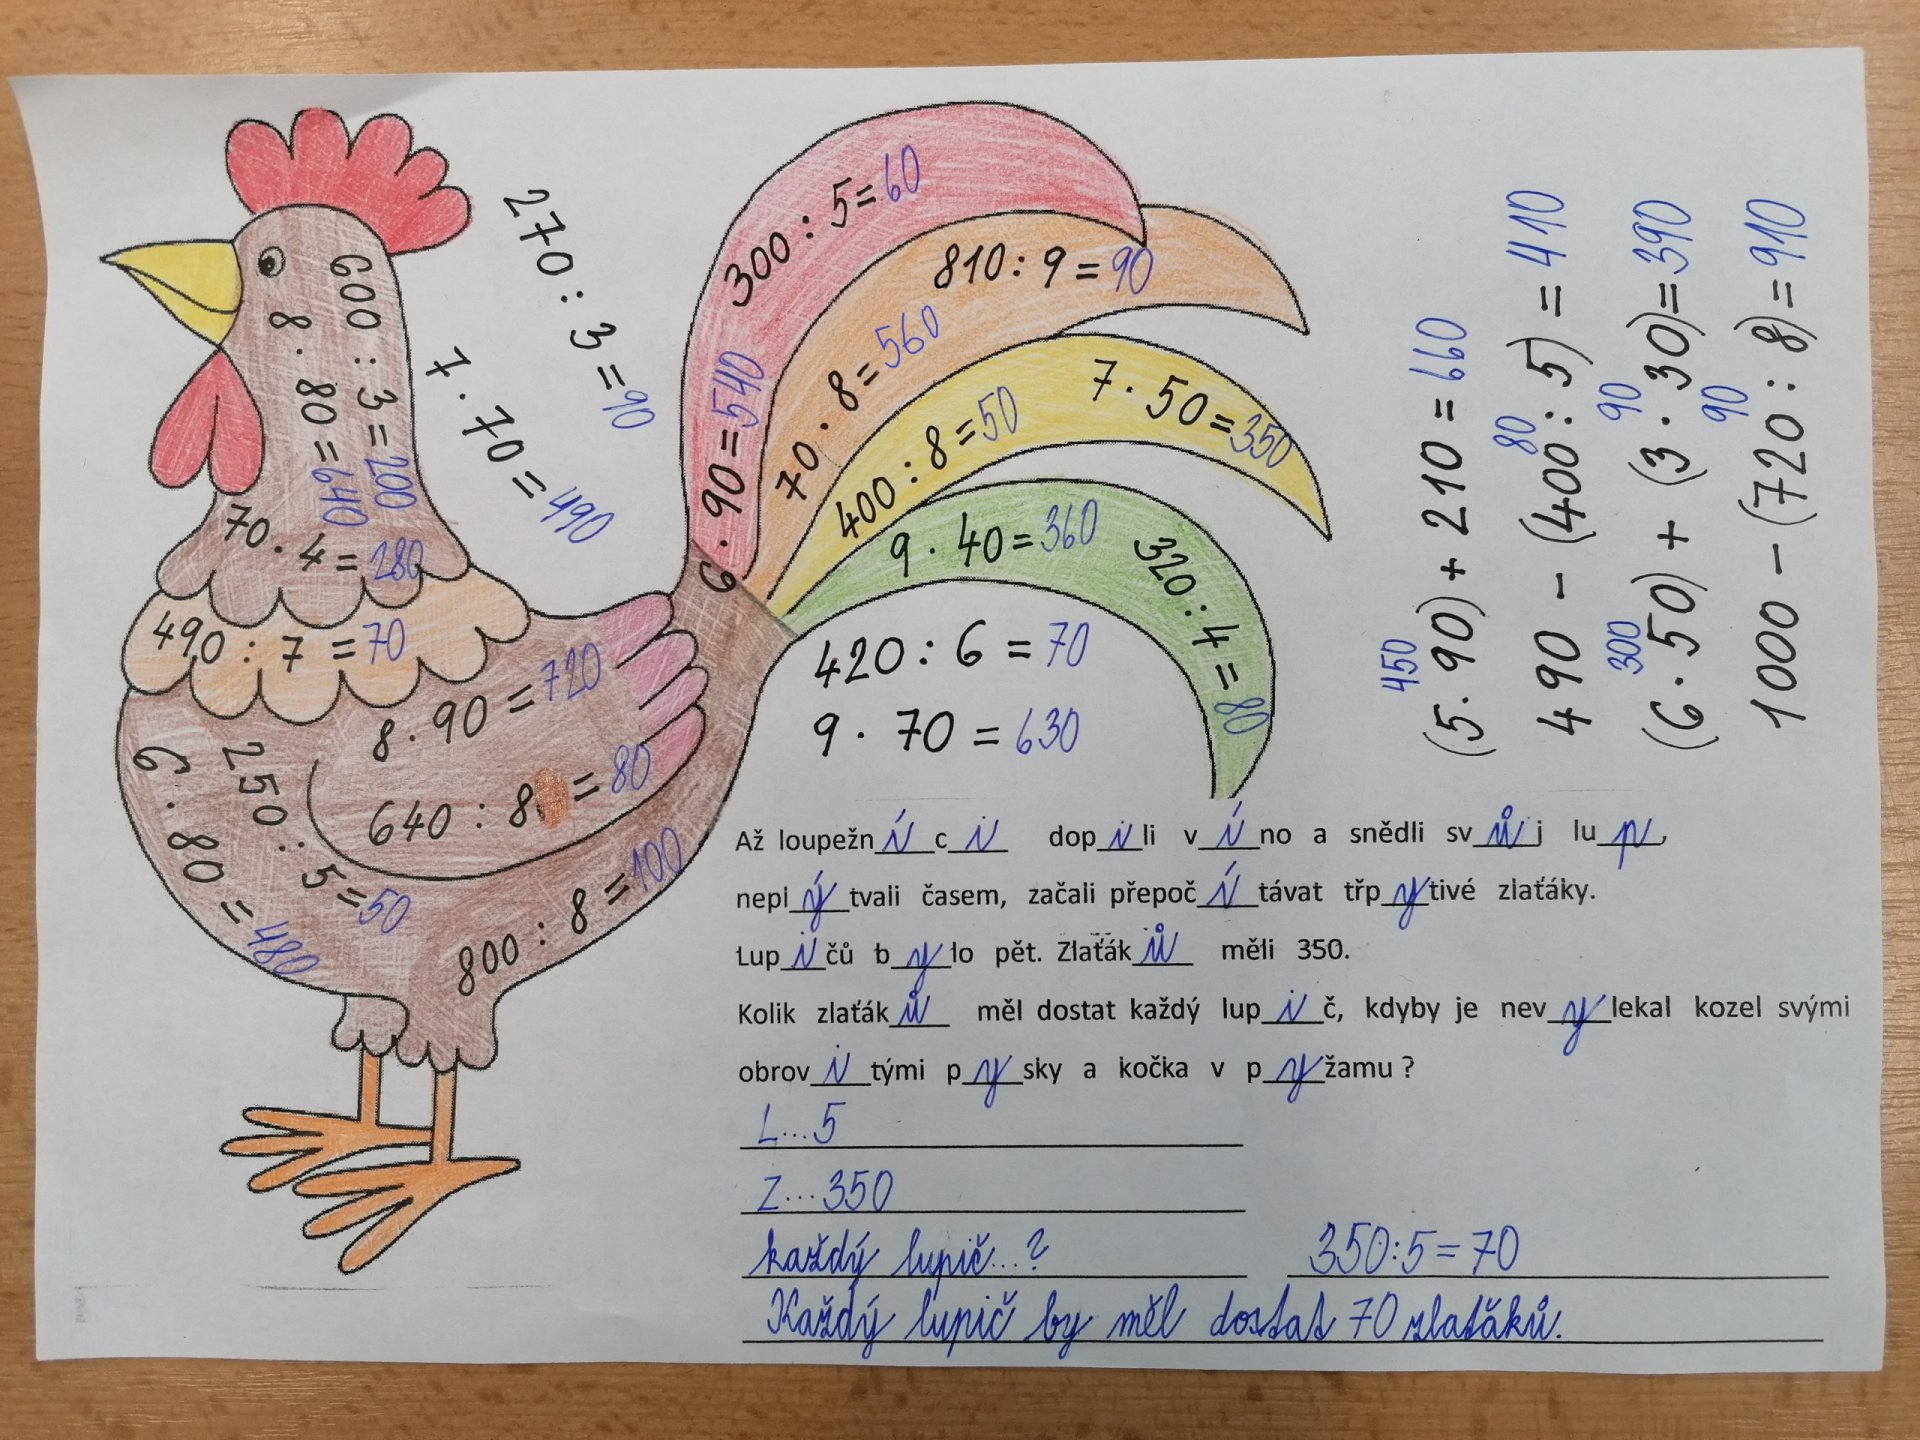 600 : 3 = 200
8 · 80 = 640
70 · 4 = 280
490 : 7 = 70
270 : 3 = 90
7 · 70 = 490
8 · 90 = 720
640 : 8 = 80
250 : 5 = 50
6 · 80 = 480
800 : 8 = 100
300 : 5 = 60
6 · 90 = 540
810 : 9 = 90
70 · 8 = 560
7 · 50 = 350
400 : 8 = 50
9 · 40 = 360
320 : 4 = 80
420 : 6 = 70
9 · 70 = 630
450
(5 · 90) + 210 = 660
80
490 - (400 : 5) = 410
300 90
(6 · 50) + (3 · 30) = 390
90
1000 - (720 : 8) = 910
Až loupežní ci dopili víno a snědli svůj lup,
neplýtvali časem, začali přepočítávat třpytivé zlaťáky.
Lupičů bylo pět. Zlaťáků měli 350.
Kolik zlaťáků měl dostat každý lupič, kdyby je nevylekal kozel svými
obrovitými pysky a kočka v pyžamu ?
L...5
Z...350
každý lupič...? 350:5=70
Každý lupič by měl dostat 70 zlaťáků.